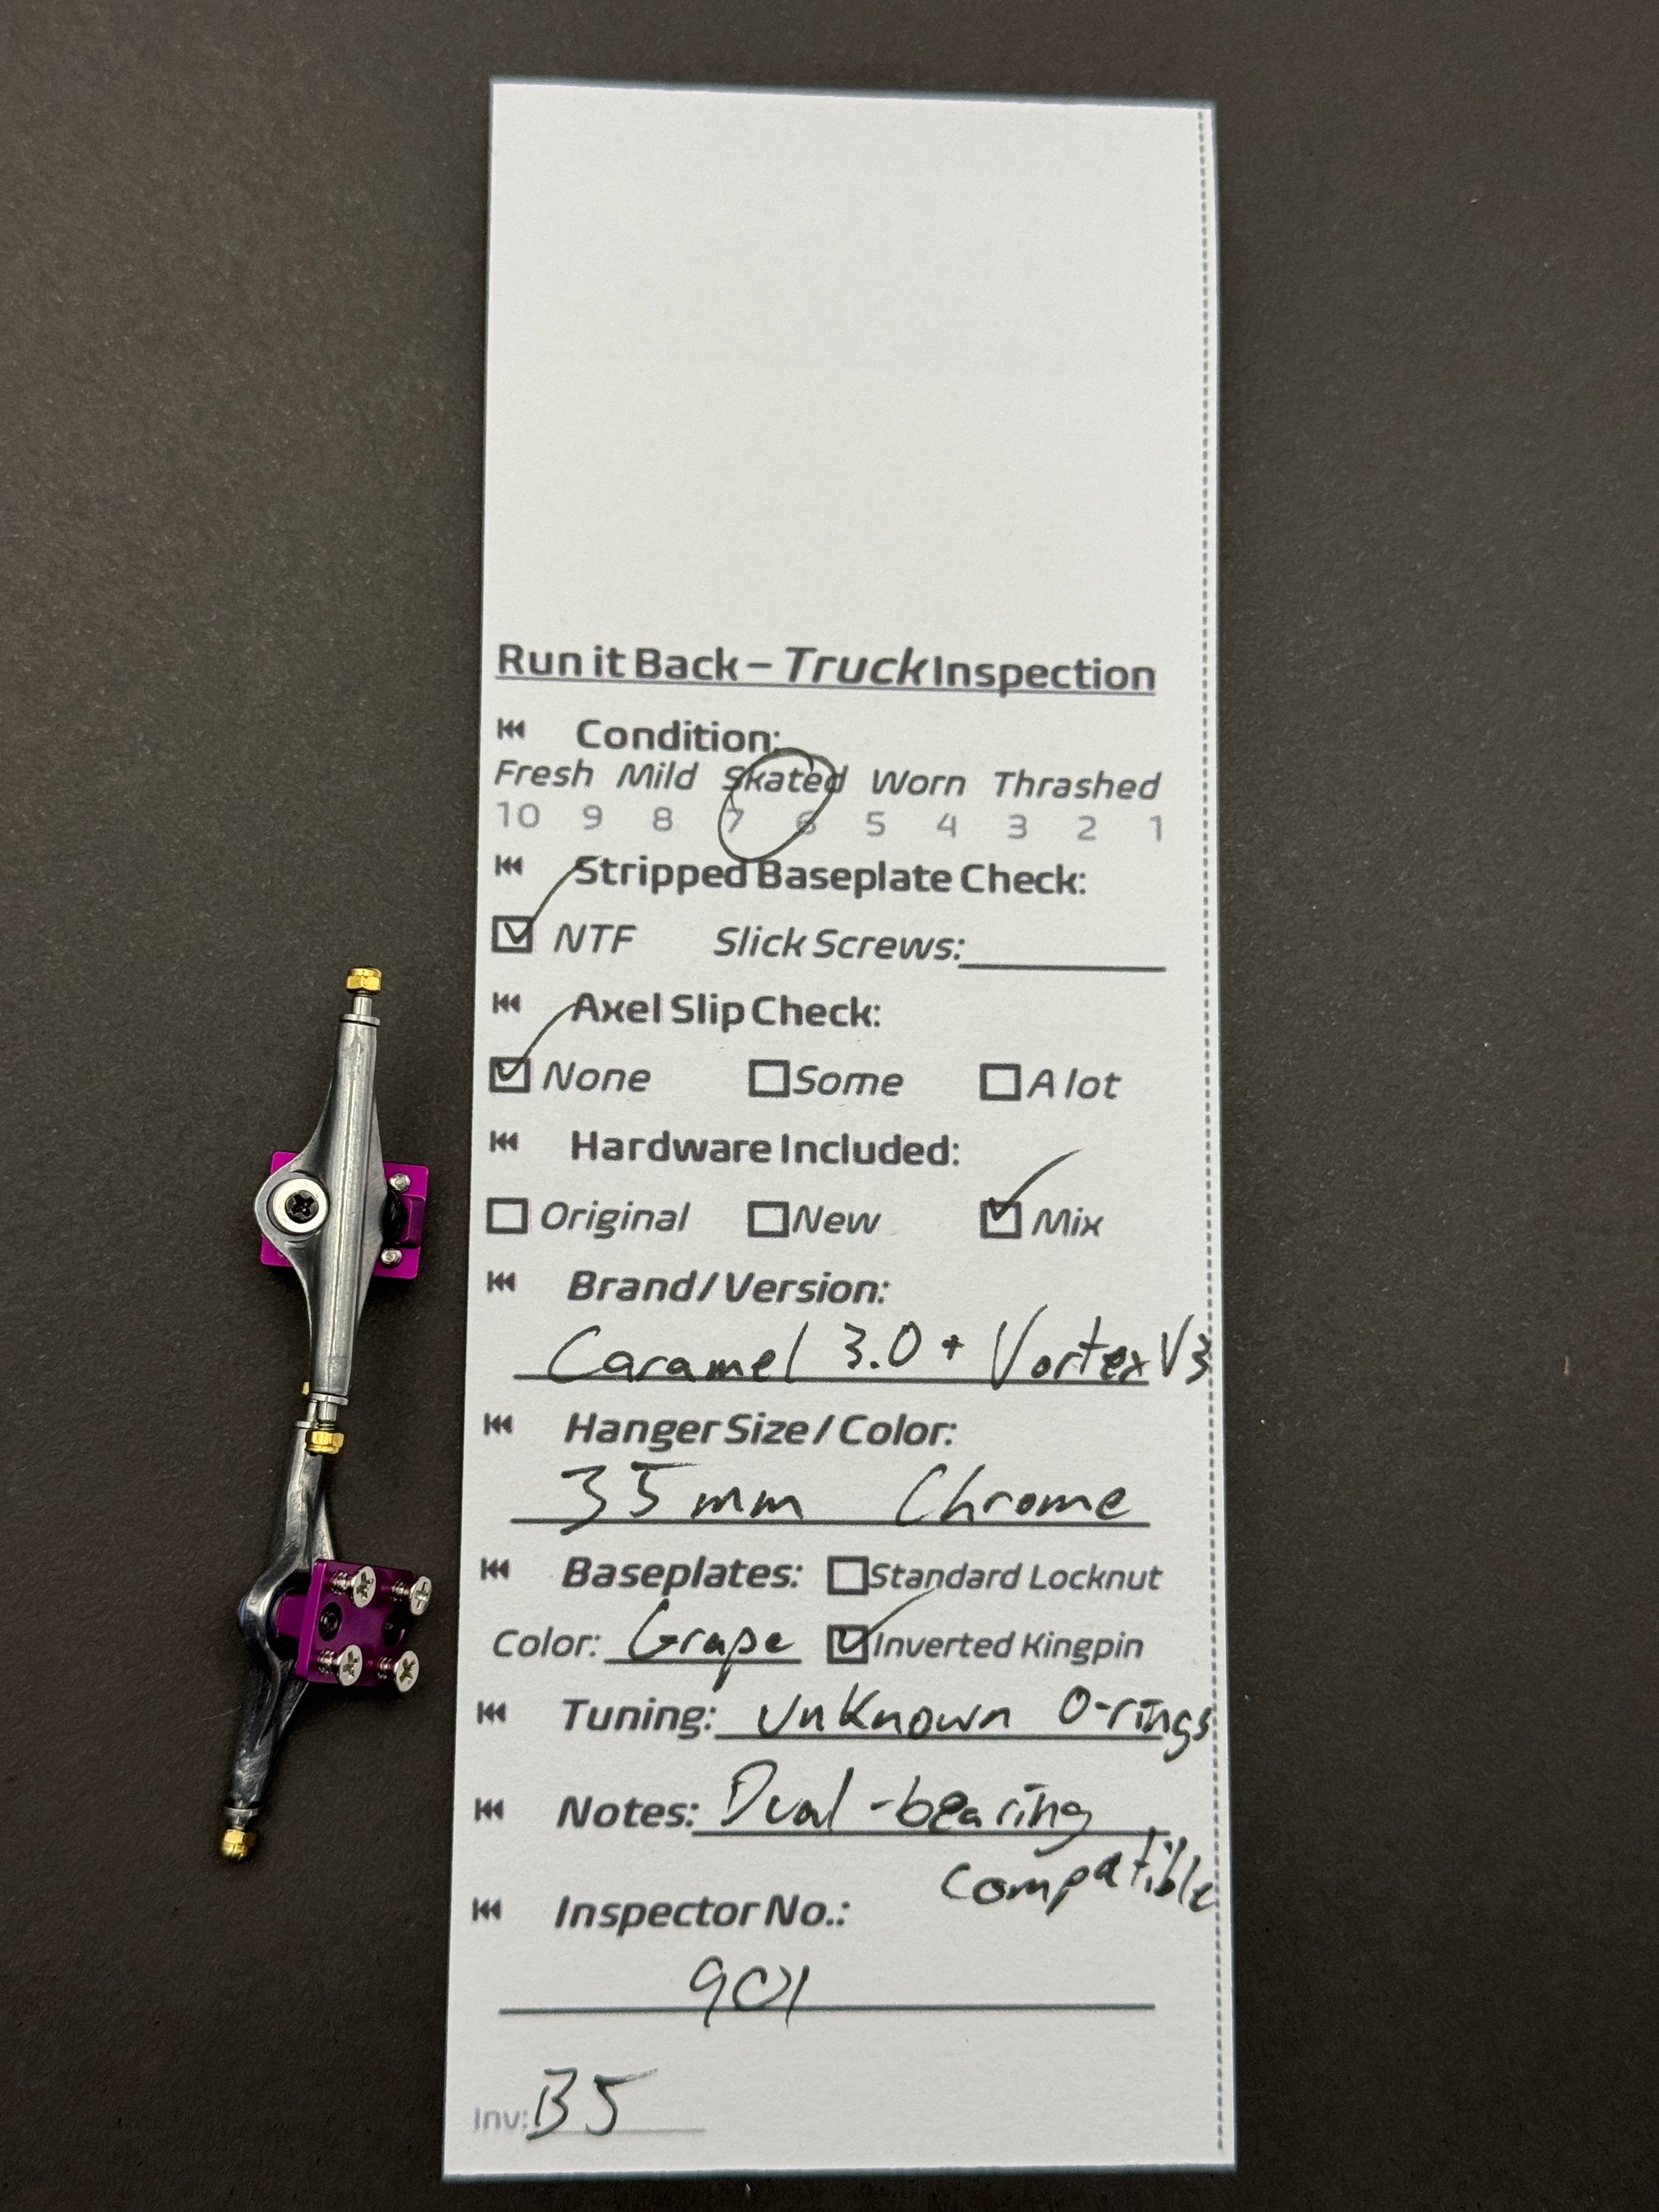 Run it Back – Truck Inspection
Condition:
Fresh Mild Skated Worn Thrashed
10 9 8 7 6 5 4 3 2 1
Stripped Baseplate Check:
NTF Slick Screws:
Axel Slip Check:
None Some A lot
Hardware Included:
Original New Mix
Brand / Version:
Caramel 3.0 + Vortex V3
Hanger Size / Color:
35mm Chrome
Baseplates: Standard Locknut
Color: Grape Inverted Kingpin
Tuning: Unknown O-rings
Notes: Dual-bearing
compatible
Inspector No.:
901
Inv: B5